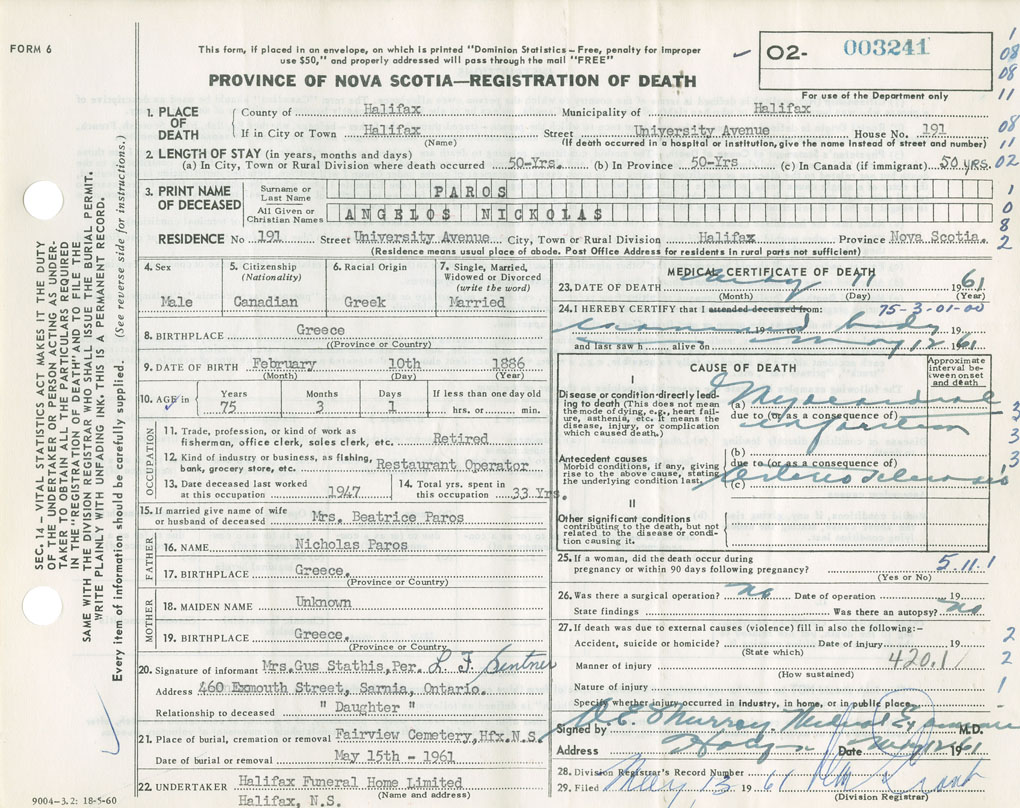 FORM 6
This form, if placed in an envelope, on which is printed "Dominion Statistics – Free, penalty for improper
use $50," and properly addressed will pass through the mail "FREE"
PROVINCE OF NOVA SCOTIA—REGISTRATION OF DEATH
O2- 003241
For use of the Department only
1. PLACE OF DEATH
County of Halifax Municipality of Halifax
If in City or Town Halifax Street University Avenue House No. 191
(Name) (If death occurred in a hospital or institution, give the name instead of street and number)
2. LENGTH OF STAY (in years, months and days)
(a) In City, Town or Rural Division where death occurred 50-Yrs. (b) In Province 50-Yrs (c) In Canada (if immigrant) 50 yrs.
3. PRINT NAME OF DECEASED
Surname or Last Name PAROS
All Given or Christian Names ANGELOS NICKOLAS
RESIDENCE No 191 Street University Avenue City, Town or Rural Division Halifax Province Nova Scotia.
(Residence means usual place of abode. Post Office Address for residents in rural parts not sufficient)
4. Sex
Male
5. Citizenship (Nationality)
Canadian
6. Racial Origin
Greek
7. Single, Married, Widowed or Divorced (write the word)
Married
8. BIRTHPLACE Greece
(Province or Country)
9. DATE OF BIRTH February 10th 1886
(Month) (Day) (Year)
10. AGE in Years Months Days If less than one day old
75 3 1 hrs. or min.
OCCUPATION
11. Trade, profession, or kind of work as
fisherman, office clerk, sales clerk, etc. Retired
12. Kind of industry or business, as fishing,
bank, grocery store, etc. Restaurant Operator
13. Date deceased last worked at this occupation 1947
14. Total yrs. spent in this occupation 33 Yrs.
15. If married give name of wife
or husband of deceased Mrs. Beatrice Paros
FATHER
16. NAME Nicholas Paros
17. BIRTHPLACE Greece.
(Province or Country)
MOTHER
18. MAIDEN NAME Unknown
19. BIRTHPLACE Greece.
(Province or Country)
20. Signature of informant Mrs.Gus Stathis,Per. L. F.
Address 460 Exmouth Street, Sarnia, Ontario.
Relationship to deceased " Daughter "
21. Place of burial, cremation or removal Fairview Cemetery,Hfx.N.S.
Date of burial or removal May 15th - 1961
22. UNDERTAKER Halifax Funeral Home Limited
(Name and address)
Halifax, N.S.
9004-3.2: 18-5-60
MEDICAL CERTIFICATE OF DEATH
23. DATE OF DEATH May 11 1961
(Month) (Day) (Year)
24. I HEREBY CERTIFY that I attended deceased from:
75-3-01-00
examined body
19 to 19
and last saw h alive on May 12 61
CAUSE OF DEATH
Approximate interval between onset and death
I
Disease or condition directly leading to death (This does not mean the mode of dying, e.g., heart failure, asthenia, etc. It means the disease, injury, or complication which caused death.)
(a) Myocardial
due to (or as a consequence of)
infarction
Antecedent causes
Morbid conditions, if any, giving rise to the above cause, stating the underlying condition last.
(b)
due to (or as a consequence of)
Arteriosclerosis
(c)
II
Other significant conditions
contributing to the death, but not related to the disease or condition causing it.
25. If a woman, did the death occur during
pregnancy or within 90 days following pregnancy? 5.11.1
(Yes or No)
26. Was there a surgical operation? no Date of operation 19
State findings Was there an autopsy? no
27. If death was due to external causes (violence) fill in also the following:-
Accident, suicide or homicide? Date of injury 19
(State which)
Manner of injury 420.1
(How sustained)
Nature of injury
Specify whether injury occurred in industry, in home, or in public place
Signed by Murray Medical Examiner M.D.
Address Date May 12 1961
28. Division Registrar's Record Number
29. Filed May 13 1961
(Division Registrar)
SEC. 14 – VITAL STATISTICS ACT MAKES IT THE DUTY
OF THE UNDERTAKER OR PERSON ACTING AS UNDER-
TAKER TO OBTAIN ALL THE PARTICULARS REQUIRED
IN THE "REGISTRATION OF DEATH" AND TO FILE THE
SAME WITH THE DIVISION REGISTRAR WHO SHALL ISSUE THE BURIAL PERMIT.
WRITE PLAINLY WITH UNFADING INK. THIS IS A PERMANENT RECORD.
Every item of information should be carefully supplied. (See reverse side for instructions.)
1
08
08
11
08
11
02
1
0
8
2
3
3
3
3
2
2
1